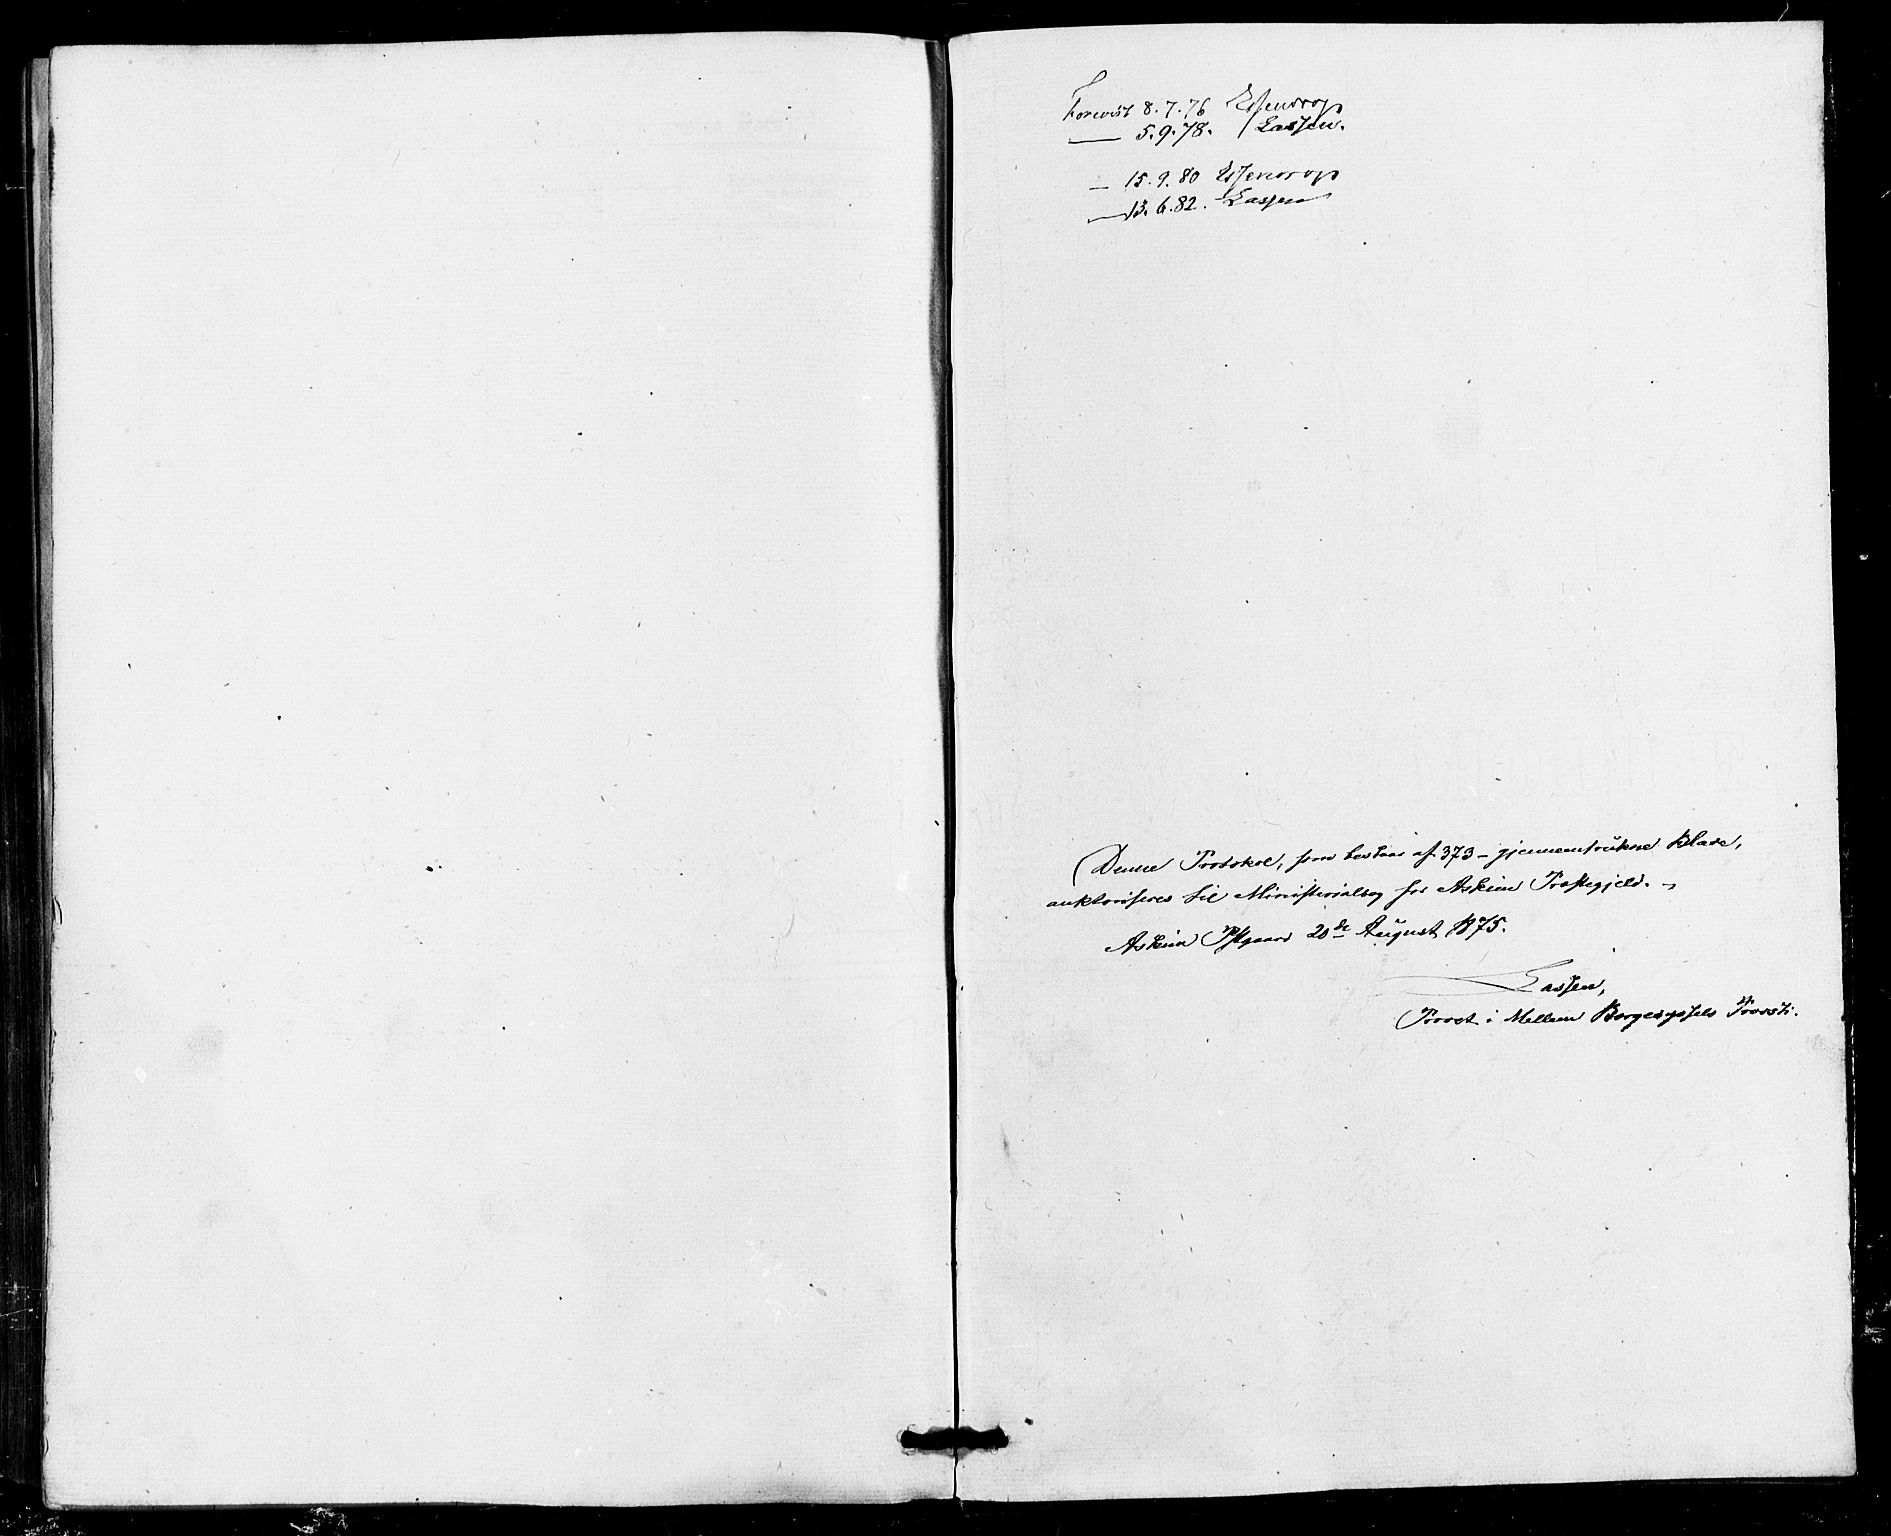 Forevist 8.7.76 Essendrop
— 5.9.78. Lassen.
— 15.9.80 Essendrop
— 13.6.82. Lassen
Denne Protokol, som bestaar af 373 – gjennemtrukne Blade,
auktoriseres til Ministerialbog for Askim Præstegjeld. –
Askim Pstgaard 20de August 1875.
Lassen,
Provst i Mellem Borgesyssels Provsti.